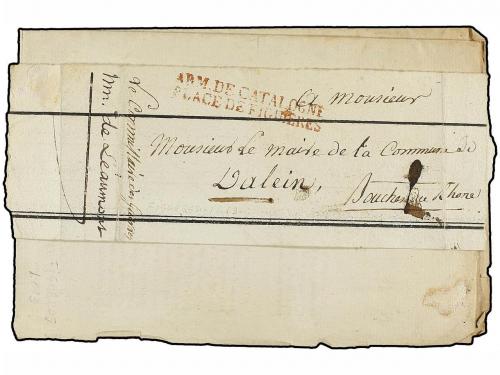 ARM. DE CATALOGNE
PLACE DE FIGUIERES
A Monsieur
Monsieur Le maire de la Commune de
Valein,
Bouches du Rhone
Le Commissaire des guerres
Mm. de Léaumont